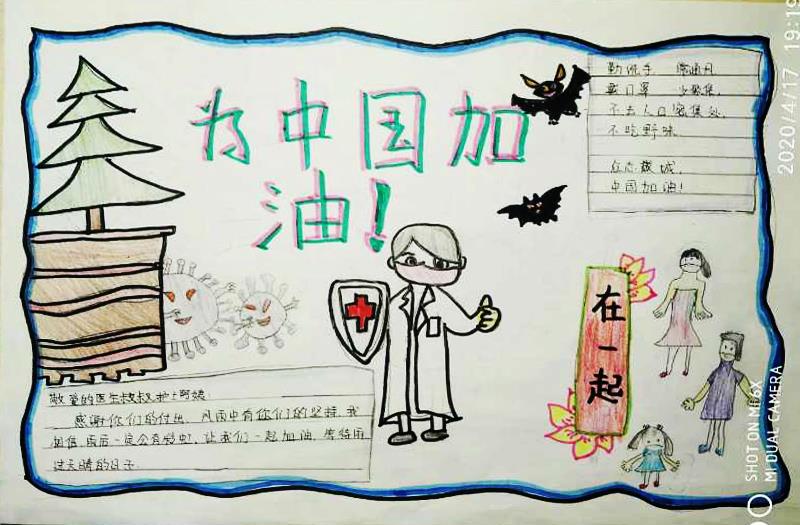 为中国加
油!
勤洗手 常通风
戴口罩 少聚集,
不去人口密集处,
不吃野味
众志成城,
中国加油!
在一起
敬爱的医生叔叔,护士阿姨:
感谢你们的付出,风雨中有你们的坚持,我
相信,雨后一定会有彩虹,让我们一起加油,等待雨
过天晴的日子.
2020/4/17 19:19
SHOT ON MI 6X
MI DUAL CAMERA